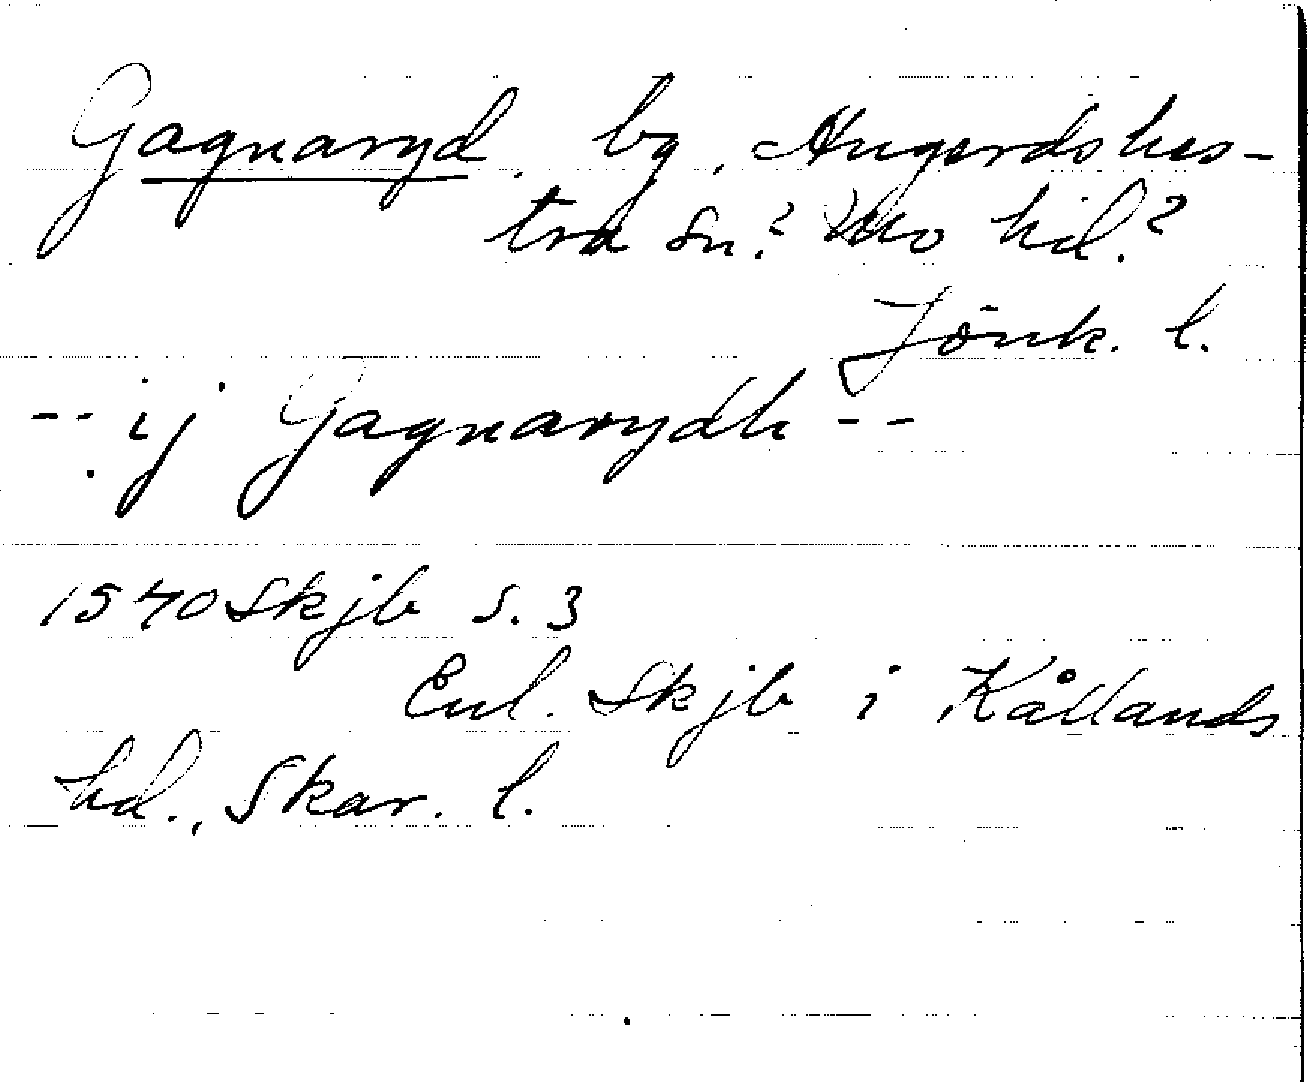 Gagnaryd, by, Angerdshes-
tra sn? Mo hd.?
Jönk. l.
-- ij Gagnarydh --
1540 Skjb s. 3
Enl. Skjb i Kållands
hd., Skar. l.